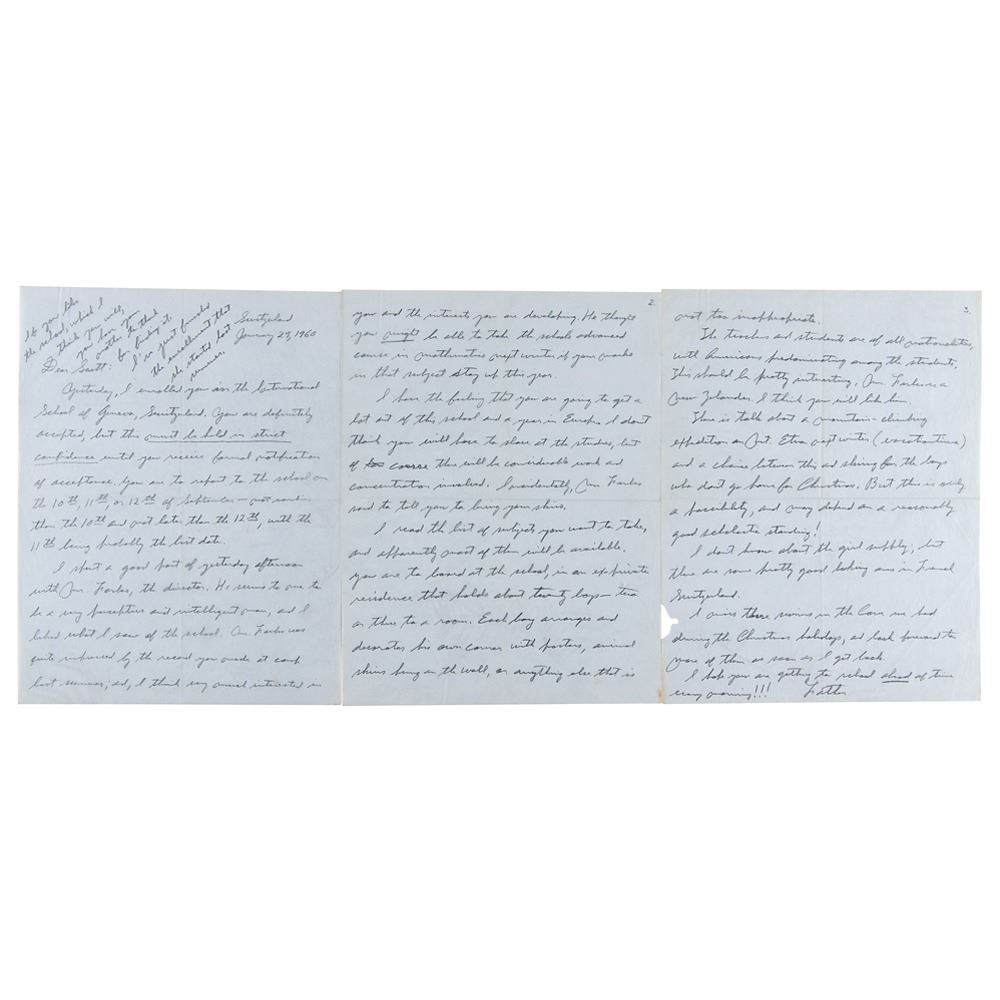 If you like
the school, which I
think you will,
you have your
mother to thank
for finding it.
I've just finished
the enrollment that
she started last
summer.
Switzerland
January 29, 1960
Dear Scott:
Yesterday, I enrolled you in the International
School of Geneva, Switzerland. You are definitely
accepted, but this must be held in strict
confidence until you receive formal notification
of acceptance. You are to report to the school on
the 10th, 11th, or 12th of September — not earlier
than the 10th and not later than the 12th, with the
11th being probably the best date.
I spent a good part of yesterday afternoon
with Mr. Forbes, the director. He seems to me to
be a very perceptive and intelligent man, and I
liked what I saw of the school. Mr. Forbes was
quite impressed by the record you made at camp
last summer, and, I think very much interested in
2.
you and the interests you are developing. He thought
you might be able to take the schools advanced
course in mathematics next winter if your marks
in that subject stay up this year.
I have the feeling that you are going to get a
lot out of this school and a year in Europe. I don't
think you will have to slave at the studies, but
of course there will be considerable work and
concentration involved. Incidentally, Mr. Forbes
said to tell you to bring your skiis.
I read the list of subjects you want to take,
and apparently most of them will be available.
You are to board at the school, in an ex-private
residence that holds about twenty boys — two
or three to a room. Each boy arranges and
decorates his own corner with posters, animal
skins hung on the wall, or anything else that is
3.
not too inappropriate.
The teachers and students are of all nationalities,
with Americans predominating among the students.
This should be pretty interesting. Mr. Forbes is a
New Zelander. I think you will like him.
There is talk about a mountain-climbing
expedition on Mt. Etna next winter (vacation time)
and a choice between this and skiing for the boys
who don't go home for Christmas. But this is only
a possibility, and may depend on a reasonably
good scholastic standing!
I don't know about the girl supply, but
there are some pretty good looking ones in French
Switzerland.
I miss those swims in the Cove we had
during the Christmas holidays, and look forward to
more of them as soon as I get back.
I hope you are getting to school ahead of time
every morning!!! Father